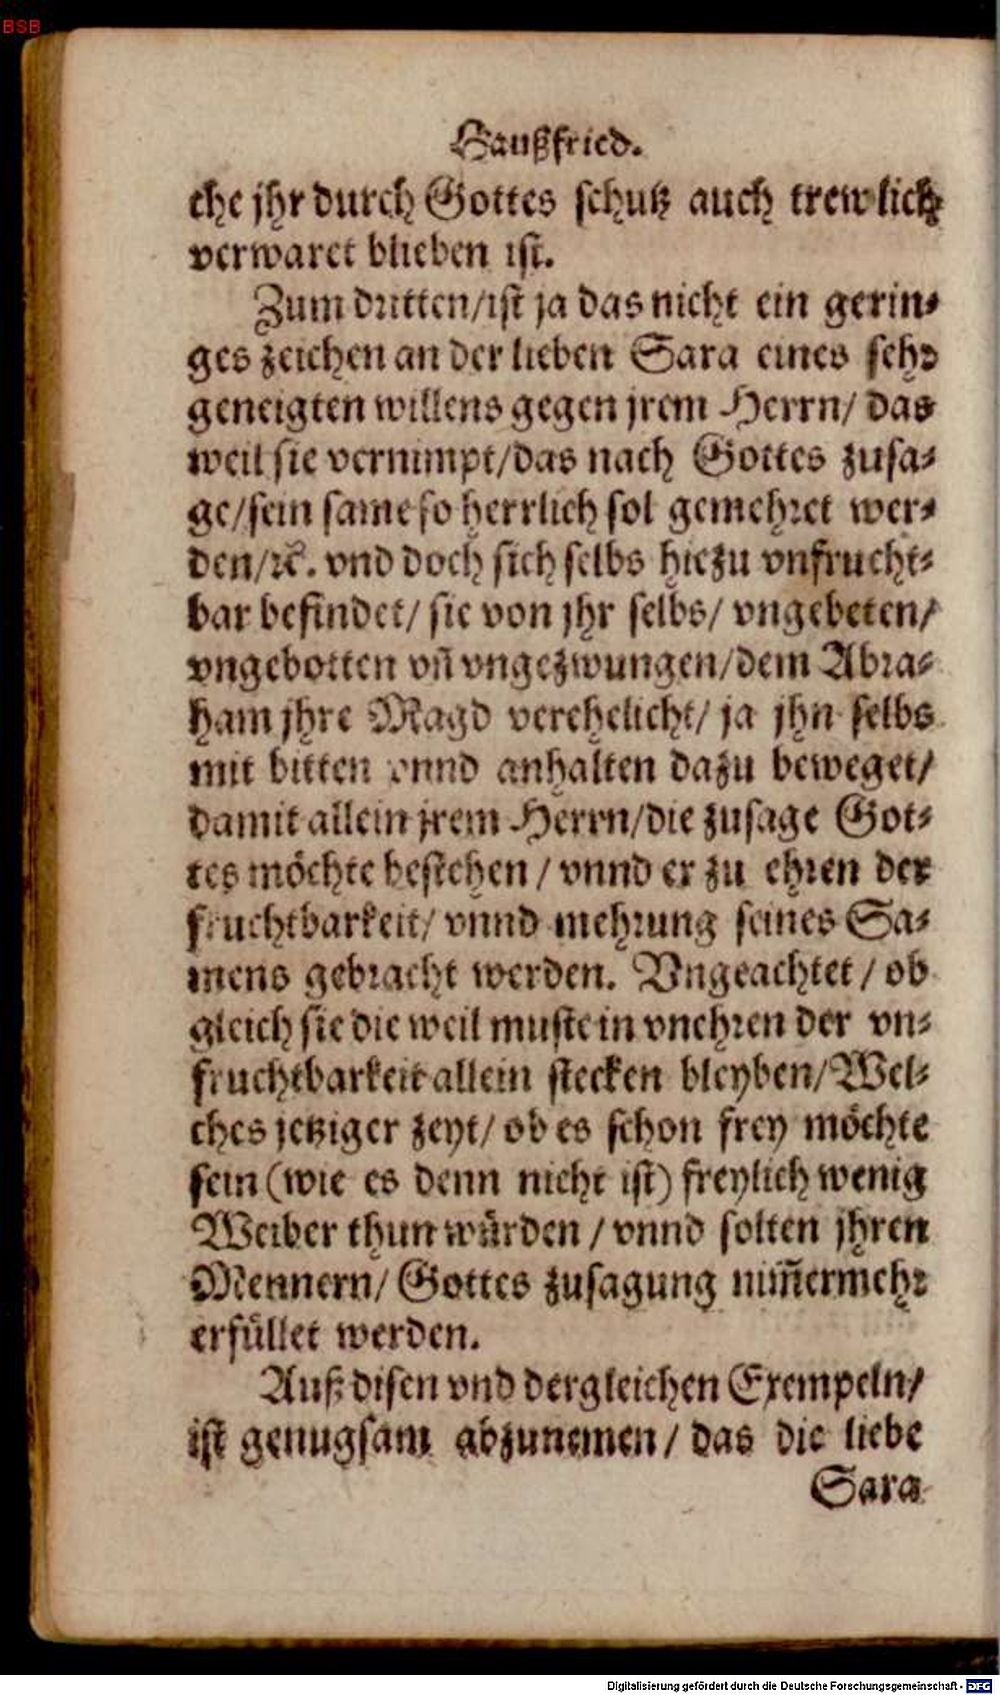 BSB
Haußfried.
che jhr durch Gottes schutz auch trewlich
verwaret blieben ist.
Zum dritten/ist ja das nicht ein gerin⸗
ges zeichen an der lieben Sara eines sehr
geneigten willens gegen jrem Herrn/ das
weil sie vernimpt/das nach Gottes zusa⸗
ge/sein same so herrlich sol gemehret wer⸗
den/ꝛc. vnd doch sich selbs hiezu vnfrucht⸗
bar befindet/ sie von jhr selbs/ vngebeten/
vngebotten vn̄ vngezwungen/dem Abra⸗
ham jhre Magd verehelicht/ ja jhn selbs
mit bitten vnnd anhalten dazu beweget/
damit allein jrem Herrn/die zusage Got⸗
tes möchte bestehen / vnnd er zu ehren der
fruchtbarkeit/ vnnd mehrung seines Sa⸗
mens gebracht werden. Vngeachtet / ob
gleich sie die weil muste in vnehren der vn⸗
fruchtbarkeit allein stecken bleyben/Wel⸗
ches jetziger zeyt/ ob es schon frey möchte
sein (wie es denn nicht ist) freylich wenig
Weiber thun würden / vnnd solten jhren
Mennern/ Gottes zusagung nim̄ermehr
erfüllet werden.
Auß disen vnd dergleichen Exempeln/
ist genugsam abzunemen / das die liebe
Sara
Digitalisierung gefördert durch die Deutsche Forschungsgemeinschaft - DFG